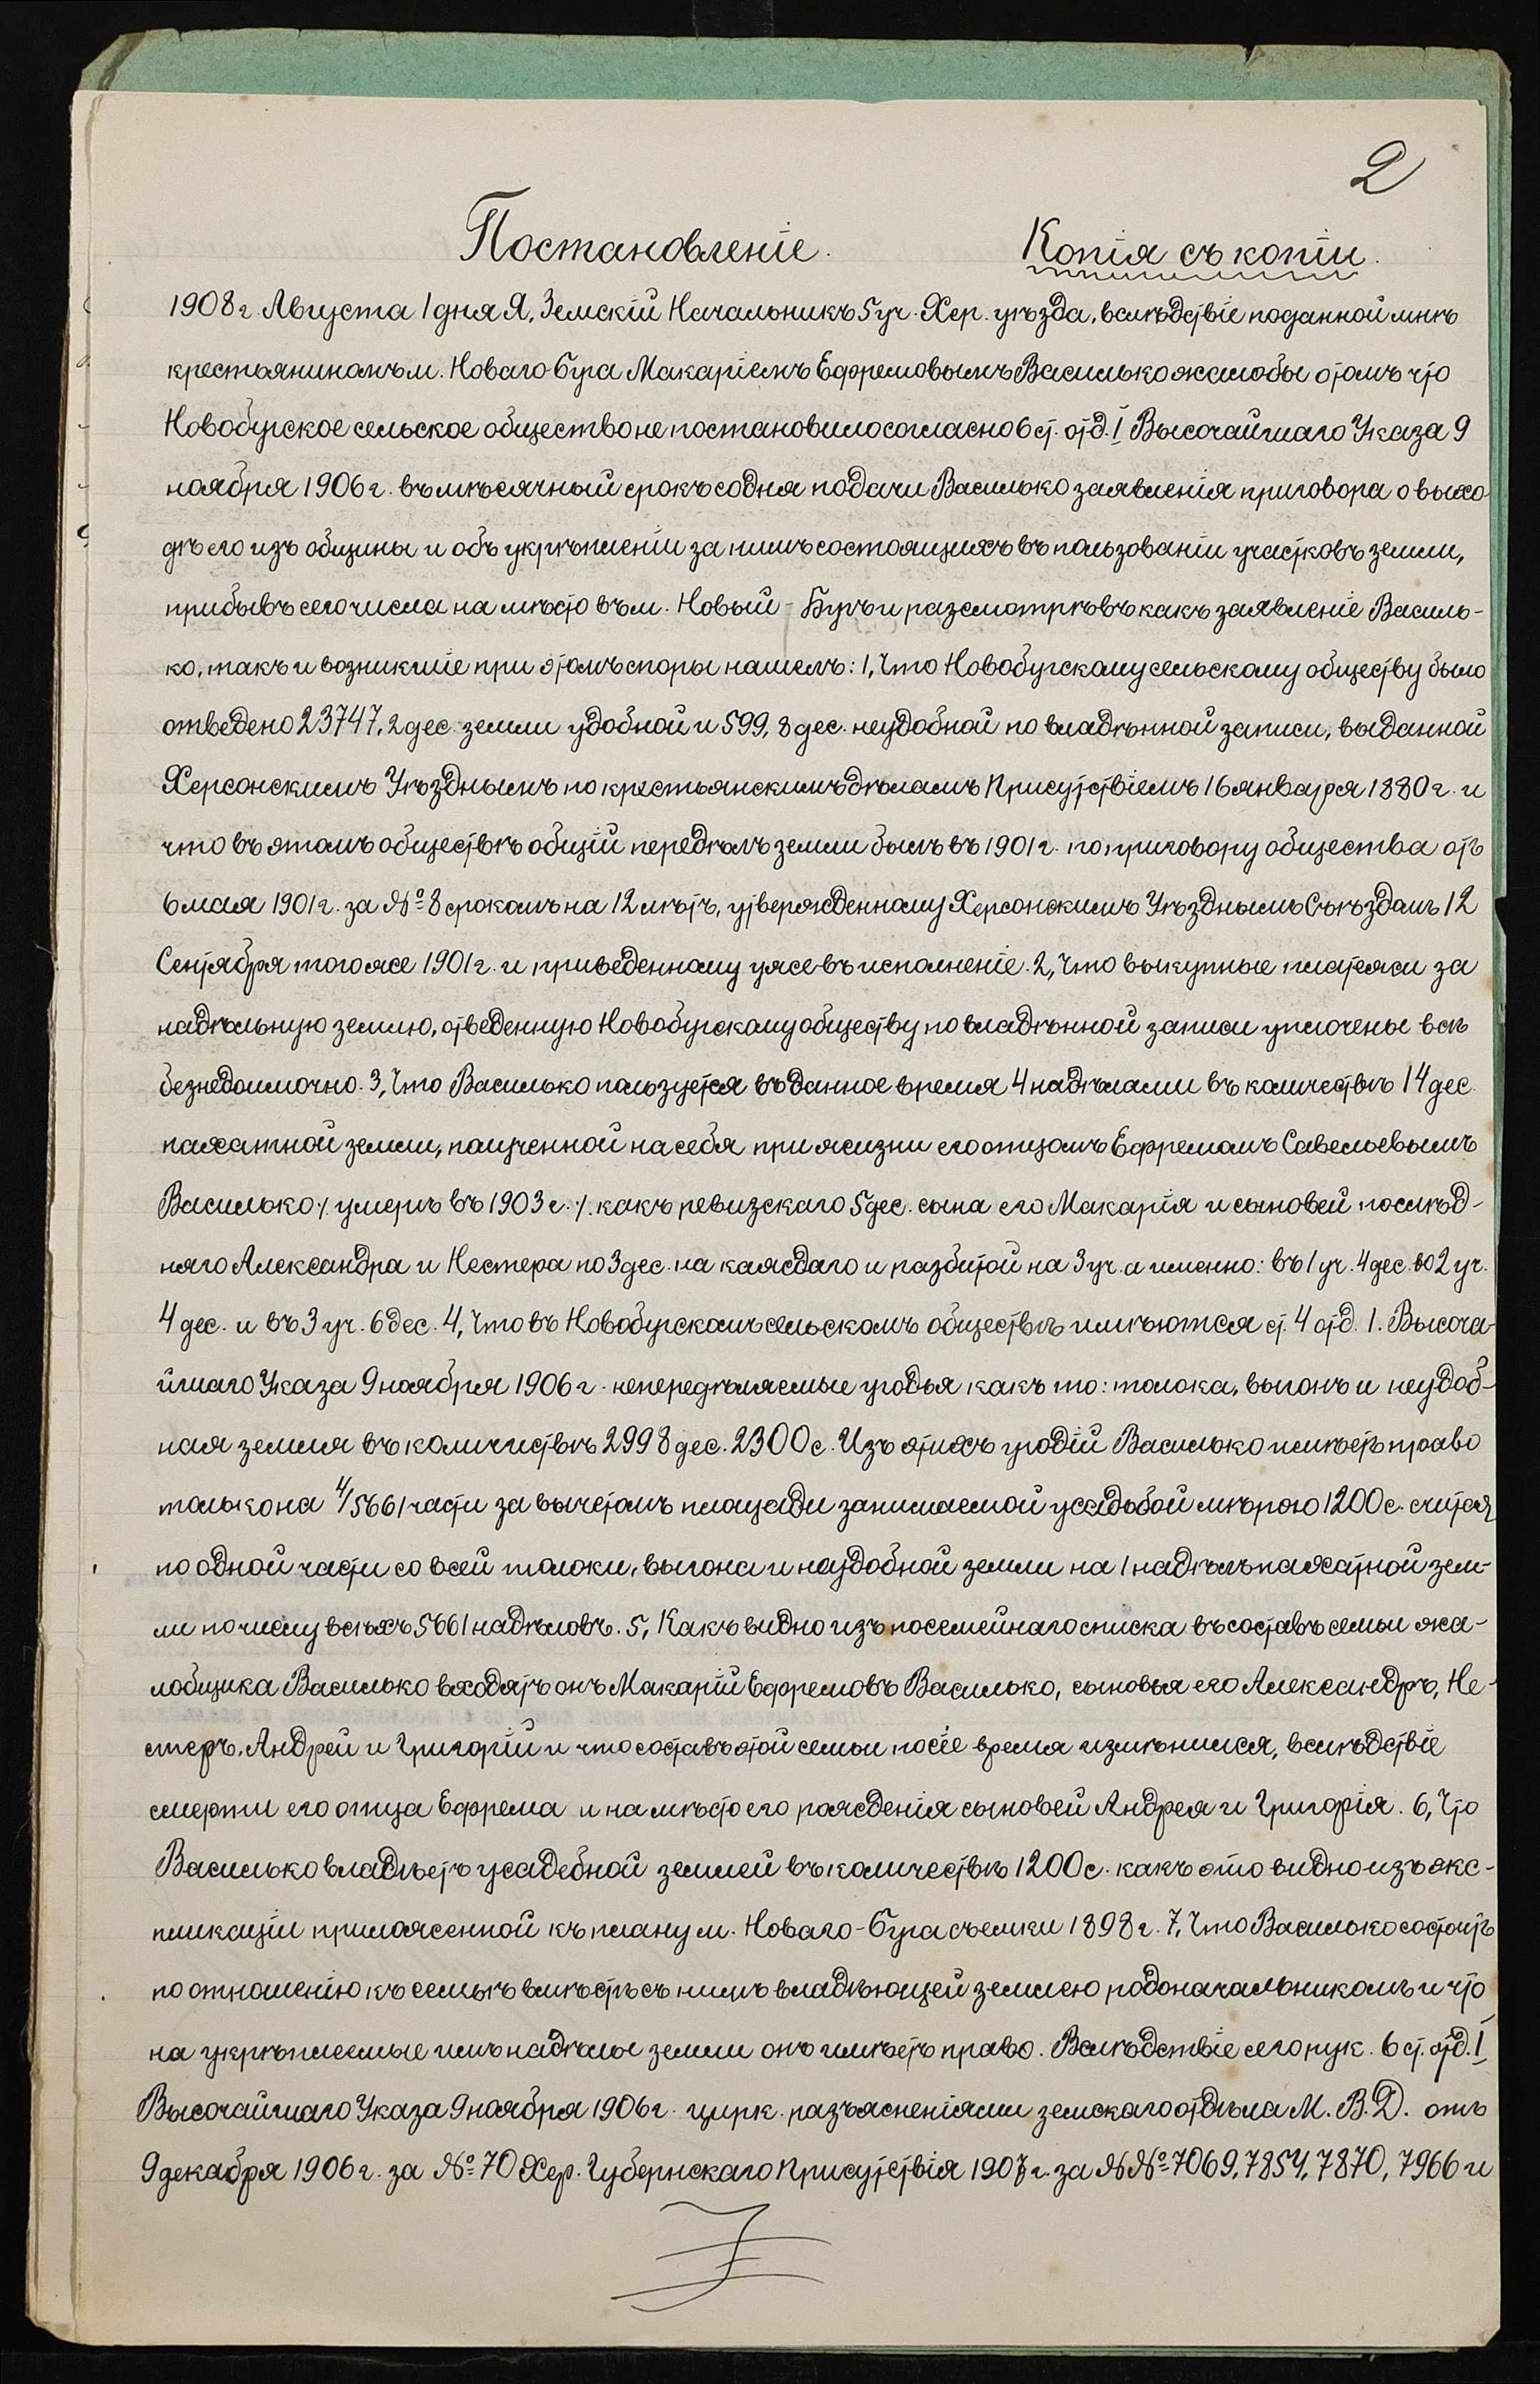 2
Постановленіе. Копія съ копіи.
1908 г. Августа 1 дня Я, Земскій Начальникъ 5 уч. Хер. уѣзда, вслѣдствіе поданной мнѣ
крестьяниномъ м. Новаго-Буга Макаріемъ Ефремовымъ Василько жалобы о томъ что
Новобугское сельское общество не постановило согласно 6 ст. отд. I Высочайшаго Указа 9
ноября 1906 г. въ мѣсячный срокъ со дня подачи Василько заявленія приговора о выхо-
дѣ его изъ общины и объ укрѣпленіи за нимъ состоящихъ въ пользованіи участковъ земли,
прибывъ сего числа на мѣсто въ м. Новый-Бугъ и разсмотрѣвъ какъ заявленіе Василь-
ко, такъ и возникшіе при этомъ споры нашелъ: 1, Что Новобугскому сельскому обществу было
отведено 23747,2 дес. земли удобной и 599,8 дес. неудобной по владѣнной записи, выданной
Херсонскимъ Уѣзднымъ по крестьянскимъ дѣламъ Присутствіемъ 16 января 1880 г. и
что въ этомъ обществѣ общій передѣлъ земли былъ въ 1901 г. по приговору общества отъ
6 мая 1901 г. за № 8 срокомъ на 12 лѣтъ, утвержденному Херсонскимъ Уѣзднымъ Съѣздомъ 12
Сентября того же 1901 г. и приведенному уже въ исполненіе. 2, Что выкупные платежи за
надѣльную землю, отведенную Новобугскому обществу по владѣнной записи уплочены всѣ
безнедоимочно. 3, Что Василько пользуется въ данное время 4 надѣлами въ количествѣ 14 дес.
пахатной земли, полученной на себя при жизни его отцомъ Ефремомъ Савельевымъ
Василько /. умеръ въ 1903 г. /. какъ ревизскаго 5 дес. сына его Макарія и сыновей послѣд-
няго Александра и Нестера по 3 дес. на каждаго и разбитой на 3 уч. а именно: въ 1 уч. 4 дес. во 2 уч.
4 дес. и въ 3 уч. 6 дес. 4, Что въ Новобугскомъ сельскомъ обществѣ имѣются ст. 4 отд. 1. Высоча-
йшаго Указа 9 ноября 1906 г. непередѣляемые угодья какъ то: толока, выгонъ и неудоб-
ная земля въ количествѣ 2998 дес. 2300 с. Изъ этихъ угодій Василько имѣетъ право
только на 4/5661 части за вычетомъ площади занимаемой усадьбой мѣрою 1200 с. считая
по одной части со всей толоки, выгона и неудобной земли на 1 надѣлъ пахатной зем-
ли по числу всѣхъ 5661 надѣловъ. 5, Какъ видно изъ посемейнаго списка въ составъ семьи жа-
лобщика Василько входятъ онъ Макарій Ефремовъ Василько, сыновья его Александръ, Не-
стеръ, Андрей и Григорій и что составъ этой семьи по сіе время измѣнился, вслѣдствіе
смерти его отца Ефрема и на мѣсто его рожденія сыновей Андрея и Григорія. 6, Что
Василько владѣетъ усадебной землей въ количествѣ 1200 с. какъ это видно изъ экс-
пликаціи приложенной къ плану м. Новаго-Буга съемки 1898 г. 7, Что Василько состоитъ
по отношенію къ семьѣ вмѣстѣ съ нимъ владѣющей землею родоначальникомъ и что
на укрѣпляемые имъ надѣлы земли онъ имѣетъ право. Вслѣдствіе сего рук. 6 ст. отд. I
Высочайшаго Указа 9 ноября 1906 г. цирк. разъясненіями земскаго отдѣла М. В. Д. отъ
9 декабря 1906 г. за № 70 Хер. Губернскаго Присутствія 1907 г. за №№ 7069, 7854, 7870, 7966 и